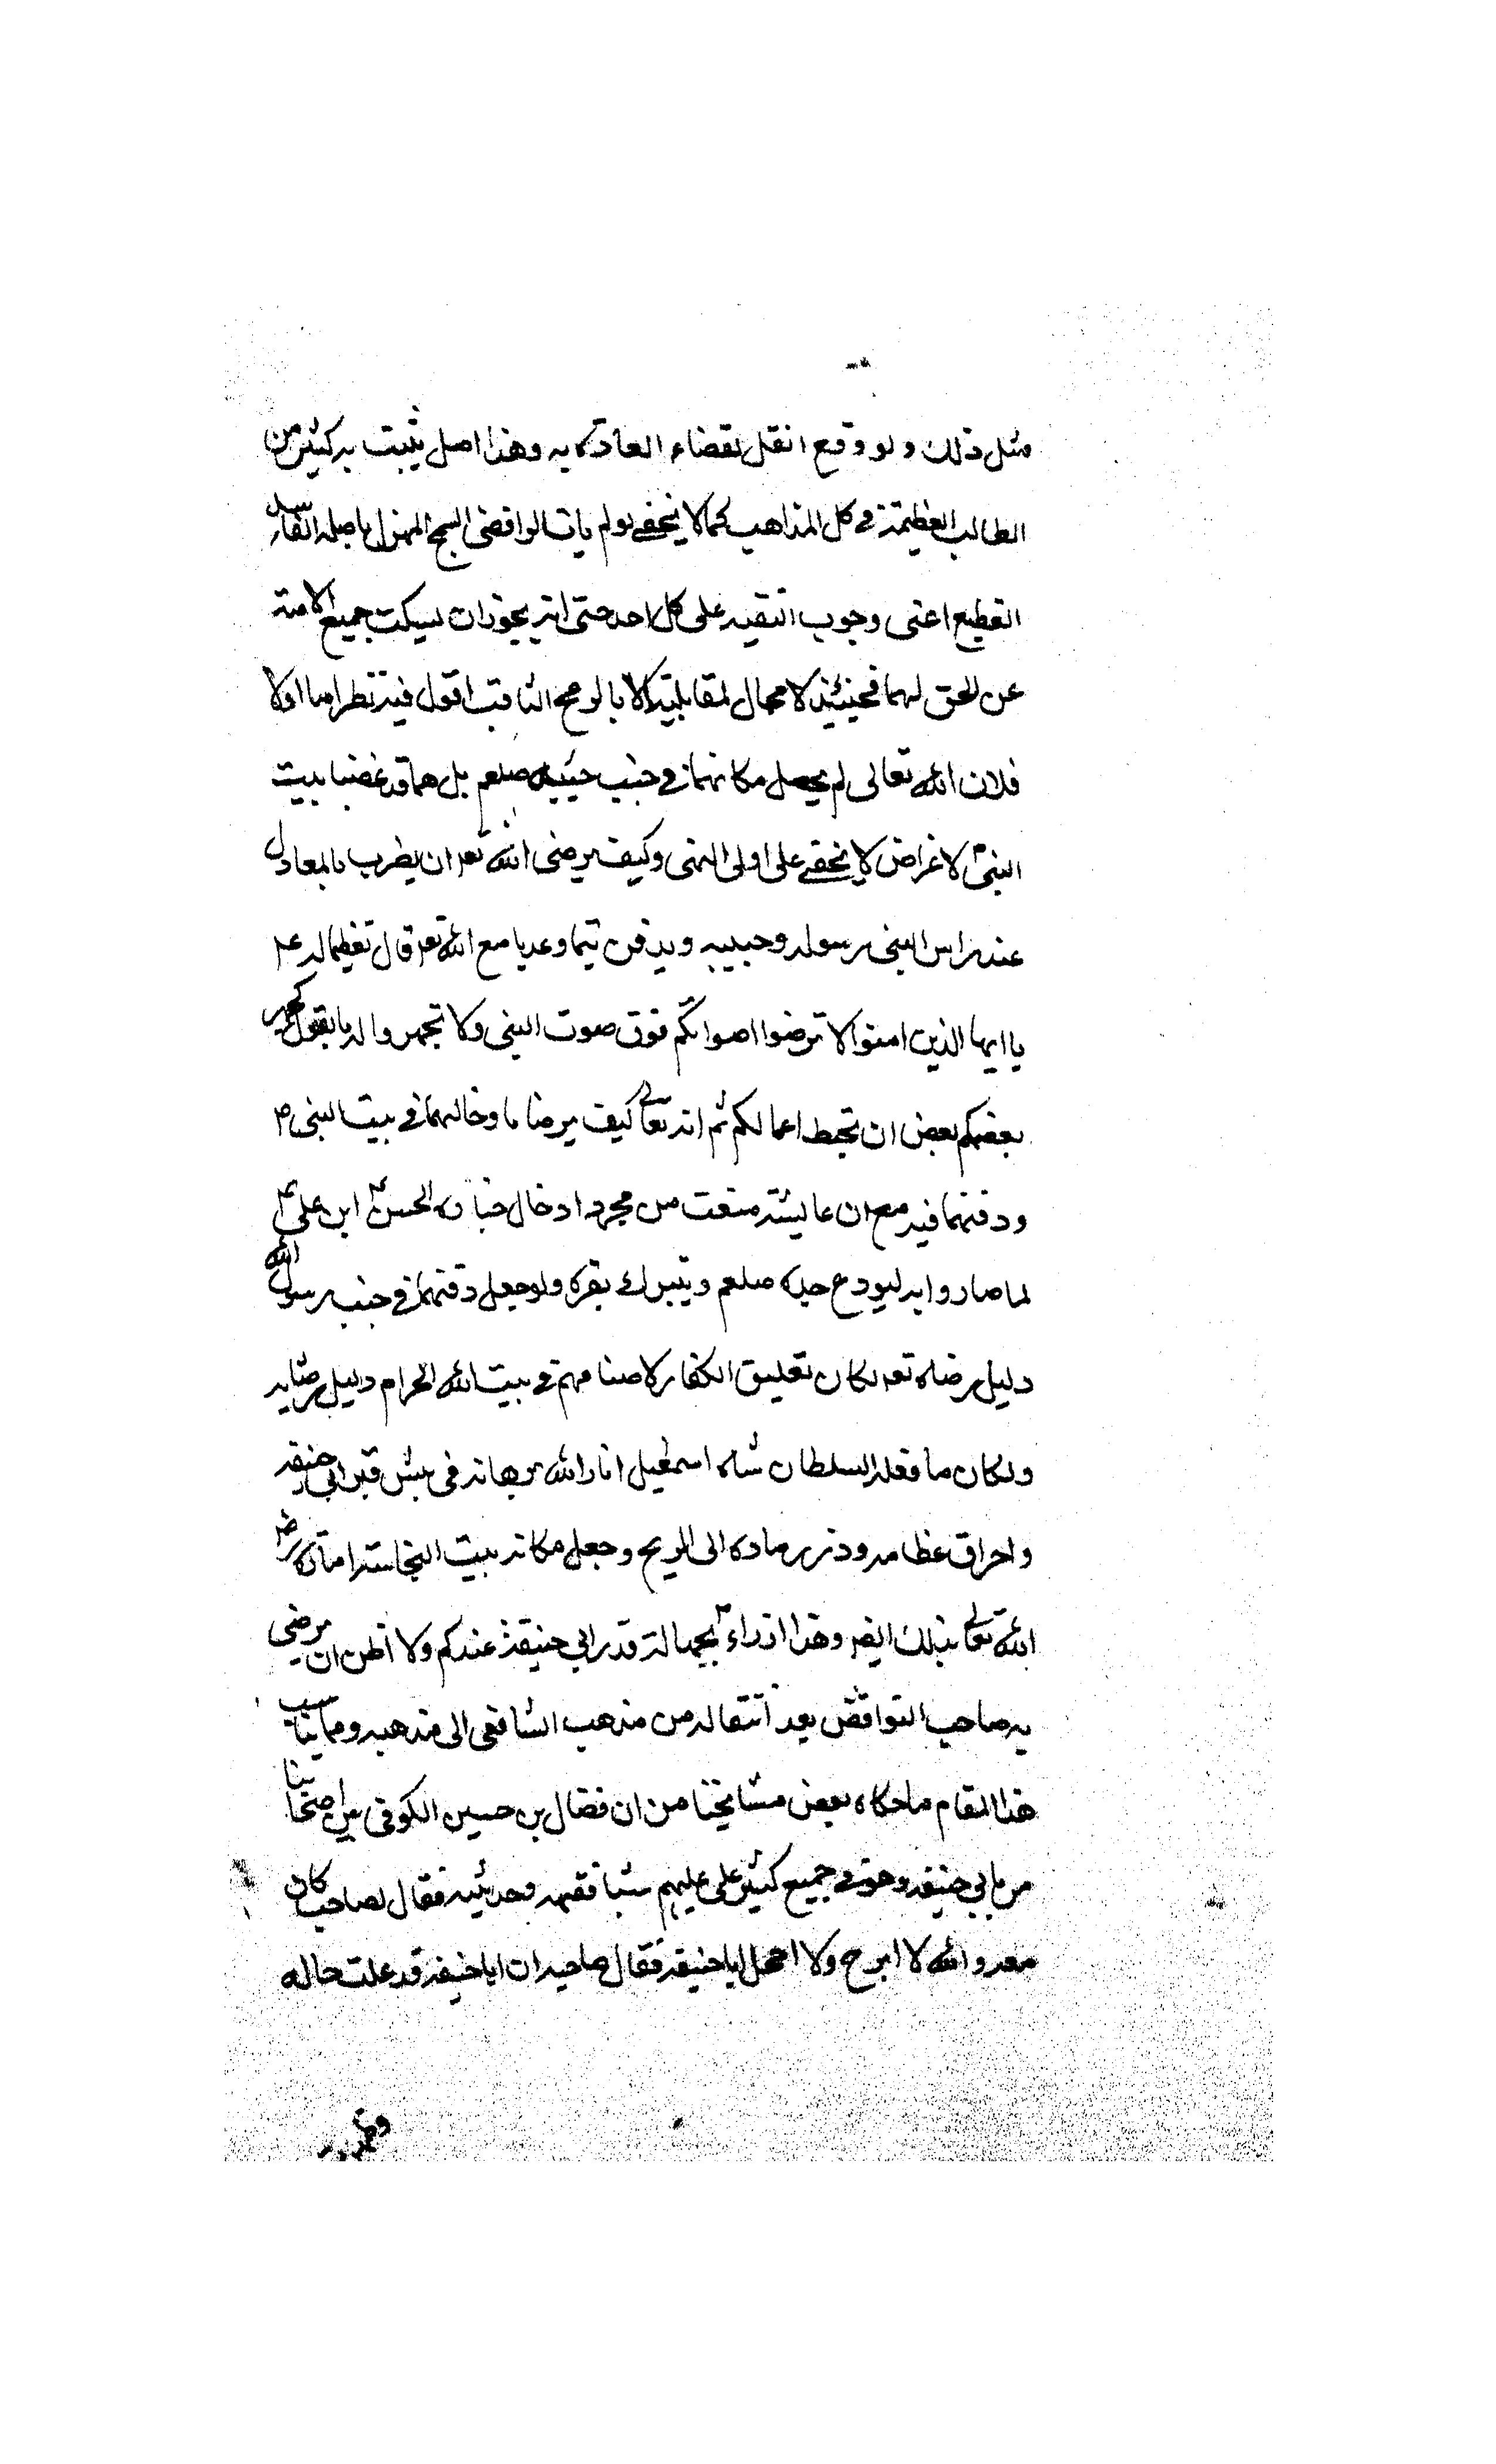 مثل ذلك ولو وقع انقل لقضاء العادة به وهذا اصل يثبت به كثير من
الطالب العظيمة في كل المذاهب كما لا يخفى ولم يات الوافضى السمج المهزل باصله الفاسد
القطيع اعنى وجوب التقيه على كل احد حتى انه يجوز ان يسكت جميع الامة
عن الحق لهما فحينئيذ لا مجال لمقابلتيه الا بالومح الثاقب اقول فيه نظر اما اولا
فلان الله تعالى لم يجعل مكانهما في جنب حبيبه صلعم بل هما قد غضبا بيت
النبى لاغراض لا يخفى على اولى النهى وكيف يرضى الله تعه ان يضرب بالمعاول
عند راس النبى رسوله وحبيبه ويدفن تيما وعديا مع الله تعه قال تعظيما له عم
يا ايها الذين امنوا لا ترضوا اصواتكم فوق صوت النبى ولا تجهروا له بالقول كجهر
بعضكم بعض ان تحبط اعمالكم ثم انه تعالى كيف يرضا باوخالهما في بيت النبى ص
ودفنهما فيه مع ان عايشة منعت من مجرد ادخال جنازة الحسن ابن على
لما صاروا به ليودع جده صلعم ويتبرك بقبره ولو جعل دفنهما في جنب رسول الله
دليل رضاه تعه لكان تعليق الكفار لاصنامهم في بيت الله الحرام دليل رضايه
ولكان ما فعله السلطان شاه اسمعيل انار الله برهانه في نبش قبر ابى حنيفه
واحراق عظامه وذر رماده الى الريح وجعل مكانه بيت النجاسة امارة رضا
الله تعالى بذلك ايضه وهذا ازراء بجهالة قدر ابي حنيفة عندكم ولا اظن ان يرضى
به صاحب النواقض بعد انتقاله من مذهب الشافعى الى مذهبه ومما يناسب
هذا المقام ما حكاه بعض مشايخنا من ان فضال بن حسين الكوفى من اصحابنا
مر بابي حنيفه وهو في جميع كثير على عليهم شيا فقهه وحديثه فقال لصاحب كان
معه والله لا ابرح ولا اخجل ابا حنيفه فقال صاحبه ان ابا حنيفه قد علت حاله